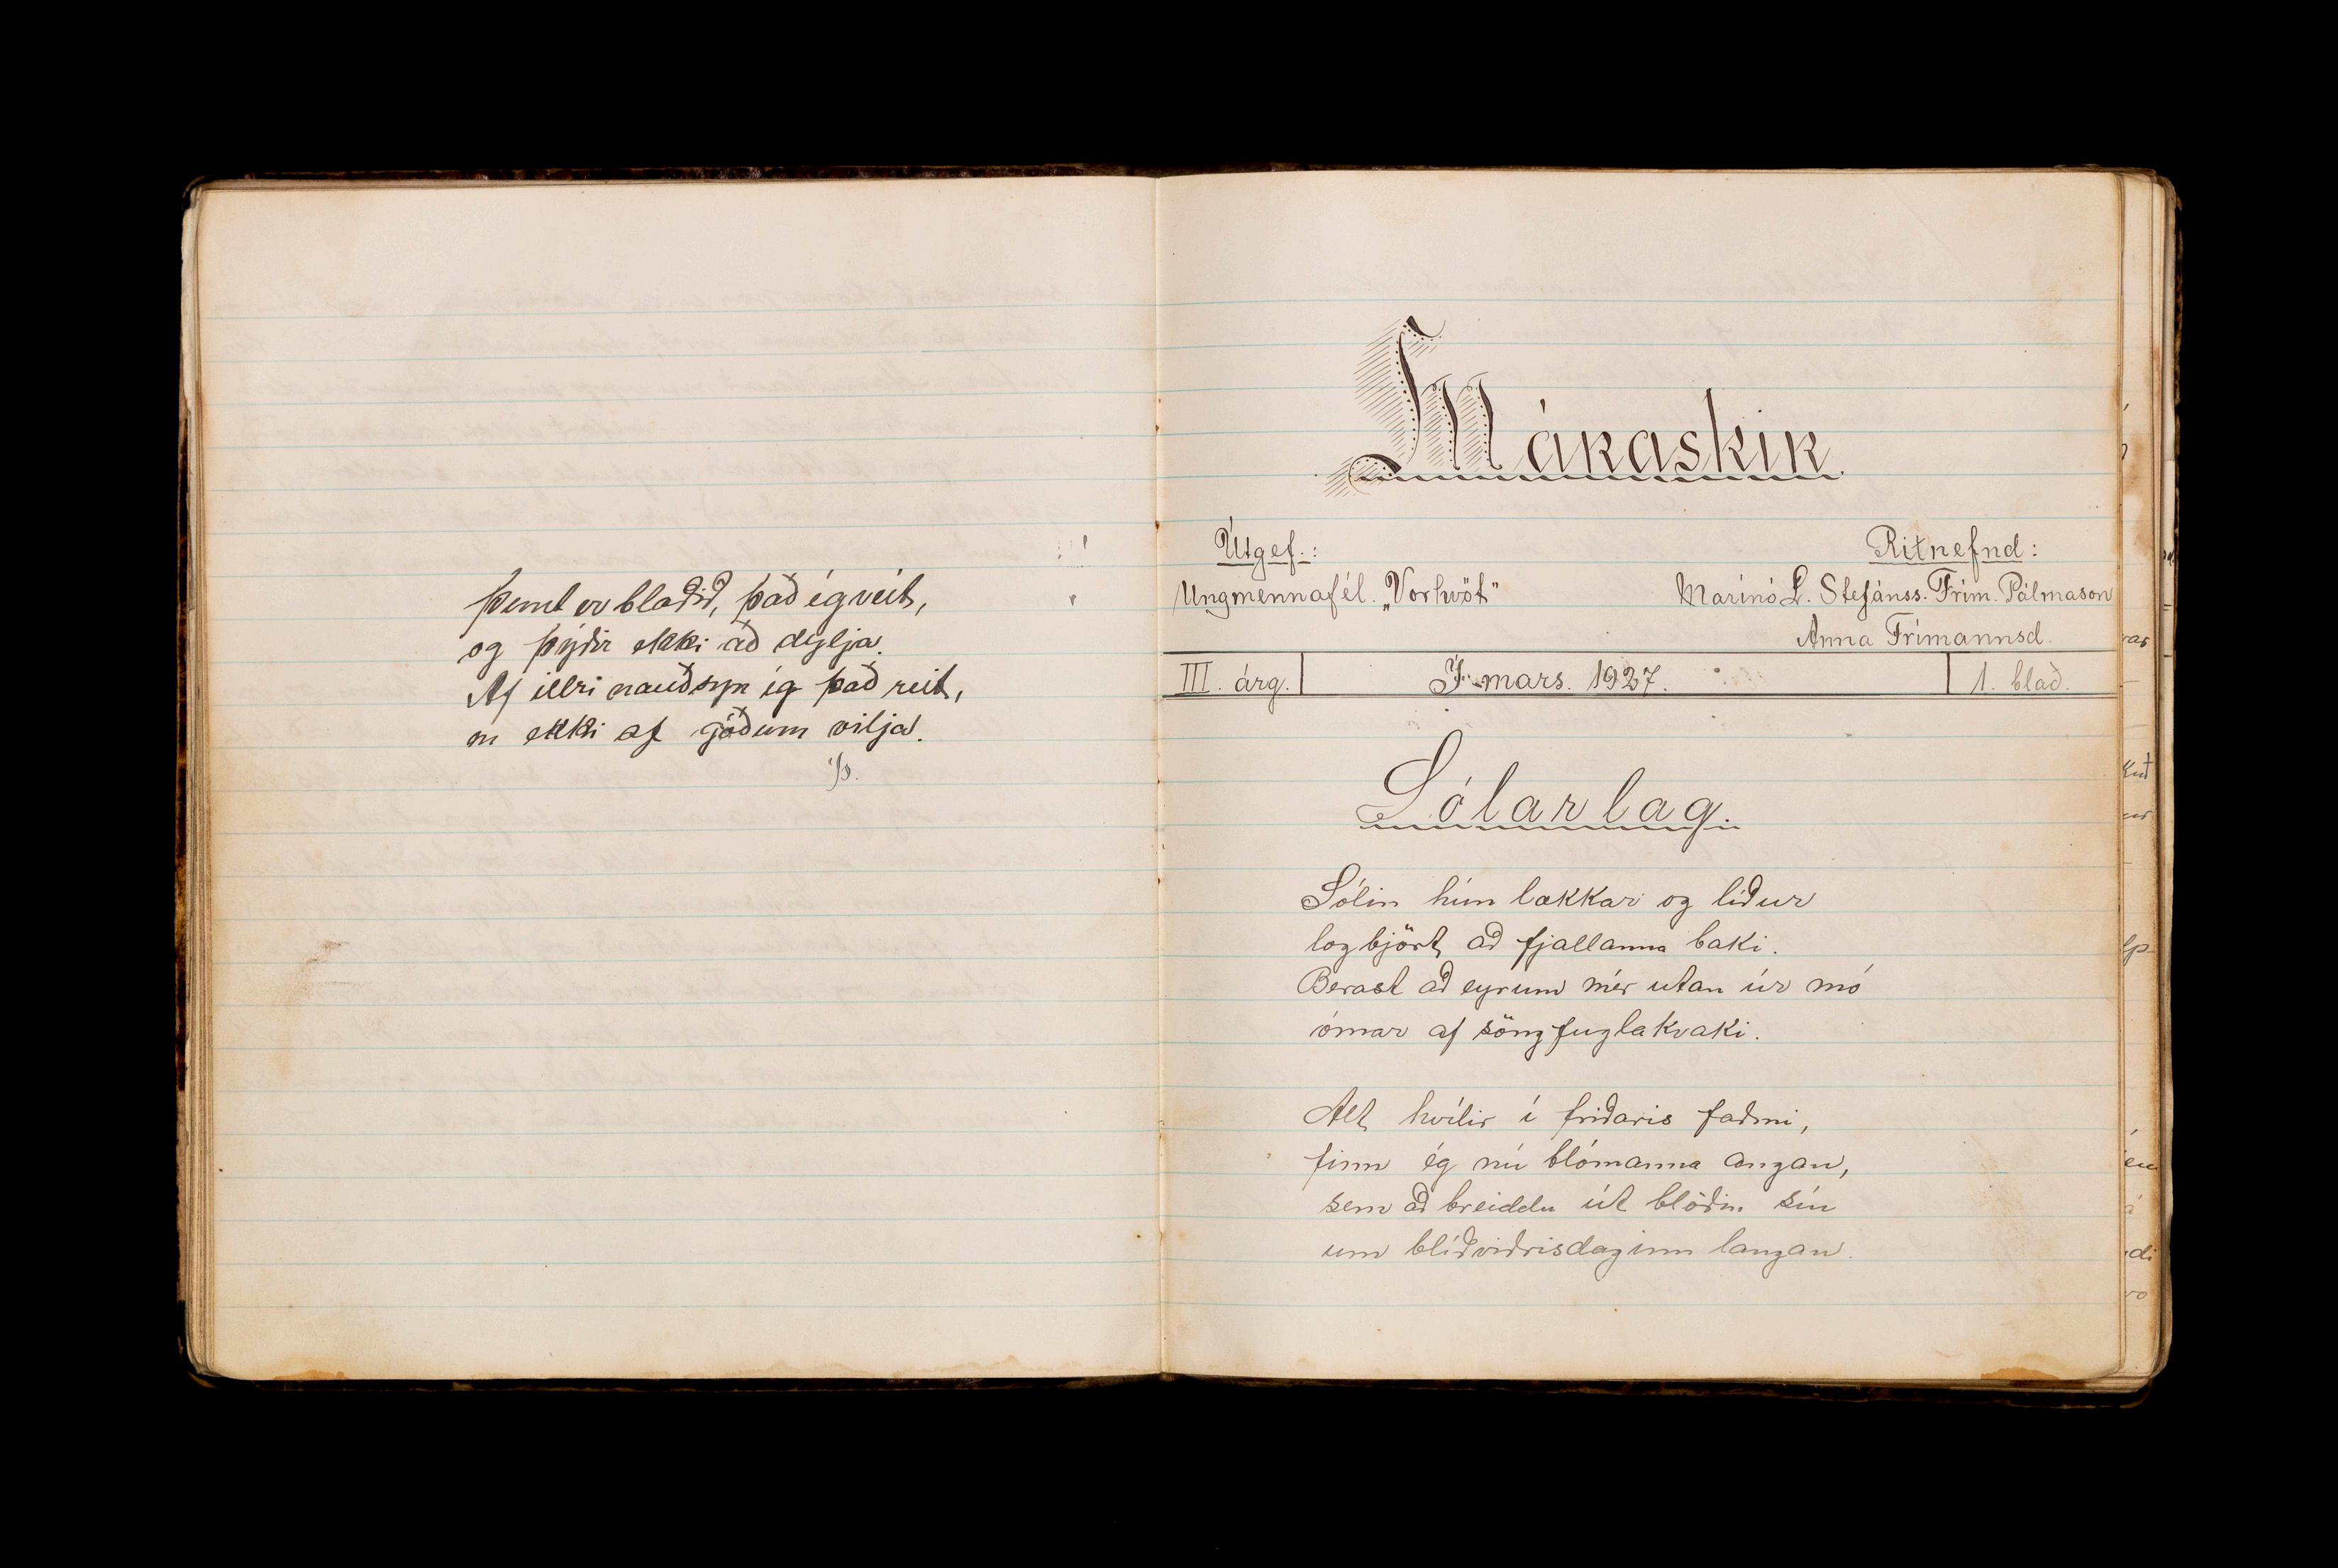 Þunt er blaðið, það ég veit,
og þýðir ekki að dylja.
Af illri nauðsyn ég það reit,
en ekki af góðum vilja.
Máraskík.
Útgef.:
Ritnefnd:
Ungmennafél. „Vorhvöt"
Marinó L. Stefánss. Frím. Pálmason
Anna Frímannsd.
III. árg.
mars. 1927.
1. blað.
Sólarlag.
Sólin hún lækkar og líður
logbjört að fjallanna baki.
Berast að eyrum mér utan úr mó
ómar af söngfuglakvaki.
Alt hvílir í friðaris faðmi,
finn ég nú blómanna angan,
sem að breiddu út blöðin sín
um blíðviðrisdaginn langan.